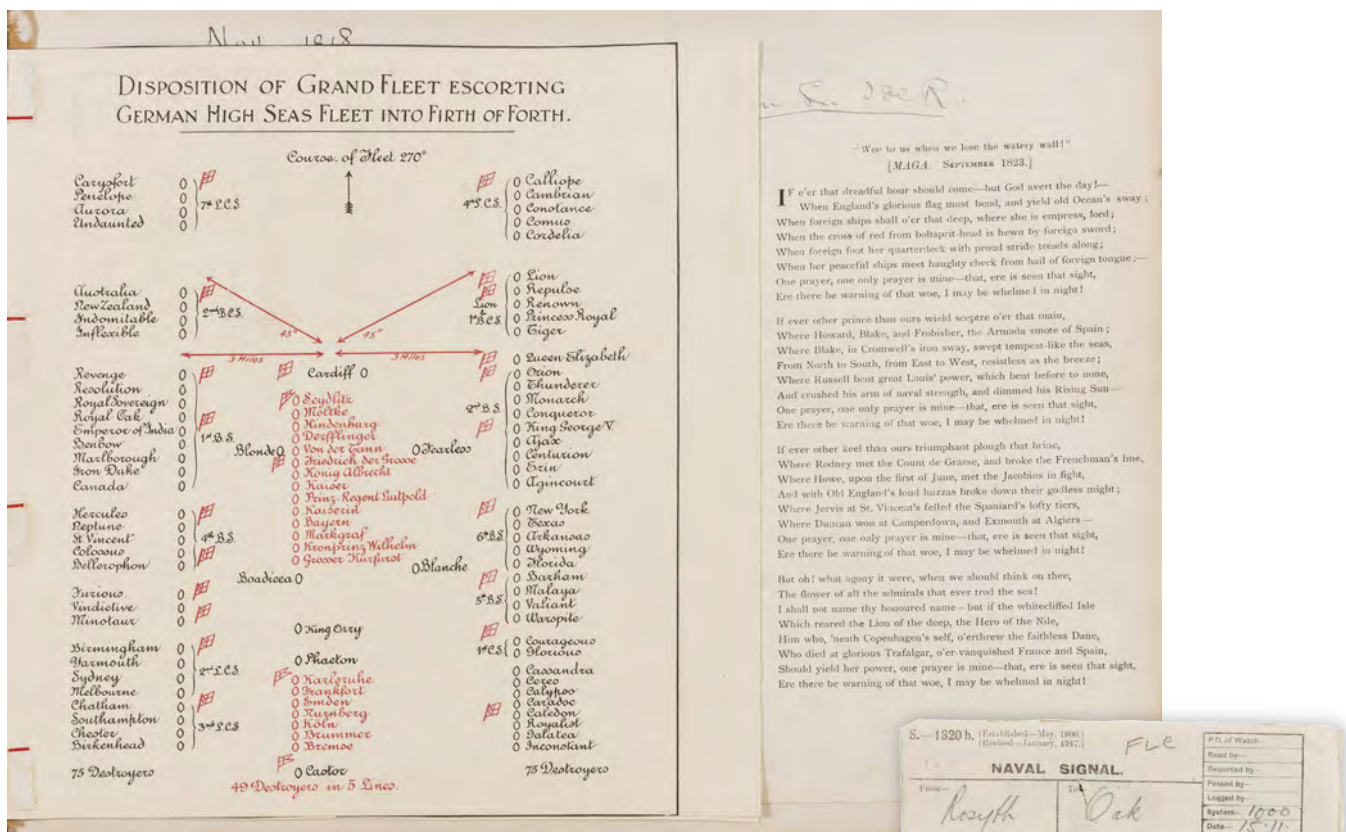 Nov 1918
DISPOSITION OF GRAND FLEET ESCORTING
GERMAN HIGH SEAS FLEET INTO FIRTH OF FORTH.
Course of Fleet 270°
Carysfort 0
Penelope 0
Aurora 0
Undaunted 0
7th L.C.S.
Australia 0
New Zealand 0
Indomitable 0
Inflexible 0
2nd B.C.S.
Revenge 0
Resolution 0
Royal Sovereign 0
Royal Oak 0
Emperor of India 0
Benbow 0
Marlborough 0
Iron Duke 0
Canada 0
1st B.S.
Hercules 0
Neptune 0
St Vincent 0
Colossus 0
Bellerophon 0
4th B.S.
Furious 0
Vindictive 0
Minotaur 0
Birmingham 0
Yarmouth 0
Sydney 0
Melbourne 0
2nd L.C.S.
Chatham 0
Southampton 0
Chester 0
Birkenhead 0
3rd L.C.S.
75 Destroyers
45°
45°
3 Miles
3 Miles
Cardiff 0
0 Seydlitz
0 Moltke
0 Hindenburg
0 Derfflinger
0 Von der Tann
0 Friedrich der Grosse
0 König Albrecht
0 Kaiser
0 Prinz-Regent Luitpold
0 Kaiserin
0 Bayern
0 Markgraf
0 Kronprinz Wilhelm
0 Grosser Kurfurst
Blonde 0
0 Fearless
Boadicea 0
0 Blanche
0 King Orry
0 Phaeton
0 Karlsruhe
0 Frankfort
0 Emden
0 Nurnberg
0 Köln
0 Brummer
0 Bremse
0 Castor
49 Destroyers in 5 Lines.
4th L.C.S.
0 Calliope
0 Cambrian
0 Constance
0 Comus
0 Cordelia
Lion
1st B.C.S.
0 Lion
0 Repulse
0 Renown
0 Princess Royal
0 Tiger
0 Queen Elizabeth
2nd B.S.
0 Orion
0 Thunderer
0 Monarch
0 Conqueror
0 King George V.
0 Ajax
0 Centurion
0 Erin
0 Agincourt
6th B.S.
0 New York
0 Texas
0 Arkansas
0 Wyoming
0 Florida
5th B.S.
0 Barham
0 Malaya
0 Valiant
0 Warspite
1st C.S.
0 Courageous
0 Glorious
0 Cassandra
0 Ceres
0 Calypso
0 Caradoc
0 Caledon
0 Royalist
0 Galatea
0 Inconstant
75 Destroyers
"Woe to us when we lose the watery wall!"
[MAGA. SEPTEMBER 1823.]
IF e'er that dreadful hour should come—but God avert the day!—
When England's glorious flag must bend, and yield old Ocean's sway;
When foreign ships shall o'er that deep, where she is empress, lord;
When the cross of red from boltsprit-head is hewn by foreign sword;
When foreign foot her quarterdeck with proud stride treads along;
When her peaceful ships meet haughty check from hail of foreign tongue;—
One prayer, one only prayer is mine—that, ere is seen that sight,
Ere there be warning of that woe, I may be whelmed in night!
If ever other prince than ours wield sceptre o'er that main,
Where Howard, Blake, and Frobisher, the Armada smote of Spain;
Where Blake, in Cromwell's iron sway, swept tempest-like the seas,
From North to South, from East to West, resistless as the breeze;
Where Russell bent great Louis' power, which bent before to none,
And crushed his arm of naval strength, and dimmed his Rising Sun—
One prayer, one only prayer is mine—that, ere is seen that sight,
Ere there be warning of that woe, I may be whelmed in night!
If ever other keel than ours triumphant plough that brine,
Where Rodney met the Count de Grasse, and broke the Frenchman's line,
Where Howe, upon the first of June, met the Jacobins in fight,
And with Old England's loud huzzas broke down their godless might;
Where Jervis at St. Vincent's felled the Spaniard's lofty tiers,
Where Duncan won at Camperdown, and Exmouth at Algiers—
One prayer, one only prayer is mine—that, ere is seen that sight,
Ere there be warning of that woe, I may be whelmed in night!
But oh! what agony it were, when we should think on thee,
The flower of all the admirals that ever trod the sea!
I shall not name thy honoured name—but if the whitecliffed Isle
Which reared the Lion of the deep, the Hero of the Nile,
Him who, 'neath Copenhagen's self, o'erthrew the faithless Dane,
Who died at glorious Trafalgar, o'er-vanquished France and Spain,
Should yield her power, one prayer is mine—that, ere is seen that sight,
Ere there be warning of that woe, I may be whelmed in night!
S.—1320 b. (Established—May, 1906.)
(Revised—January, 1917.)
NAVAL SIGNAL.
From—
Rosyth
To
Oak
P.O. of Watch—
Read by—
Reported by—
Passed by—
Logged by—
System— 1000
Date— 15.11.